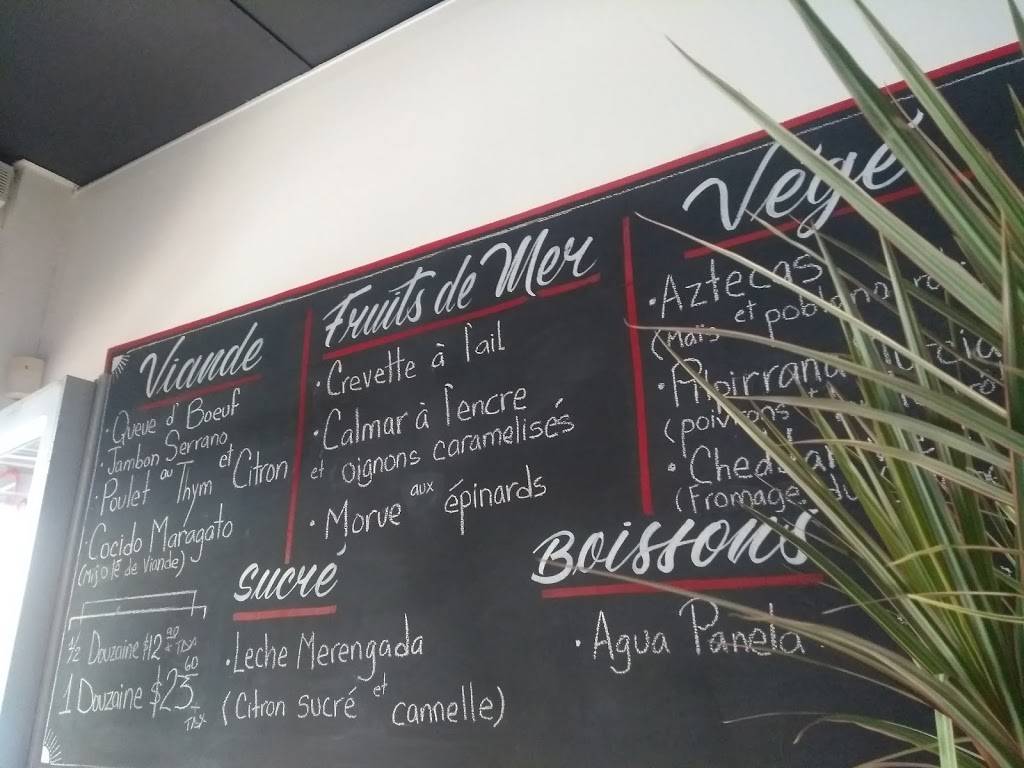 Viande
· Queue d'Boeuf
· Jambon Serrano
· Poulet au Thym et Citron
· Cocido Maragato
(Mijoté de Viande)
1/2 Douzaine $12 90 + Tax
1 Douzaine $23 60 + Tax
Fruits de Mer
· Crevette à l'ail
· Calmar à l'encre
et oignons caramelisés
· Morue aux épinards
Sucré
· Leche Merengada
(Citron sucré et cannelle)
Végé
· Aztecas
(Maïs et poblano
(poivrons
· Cheddar
(Fromage du
Boissons
· Agua Panela